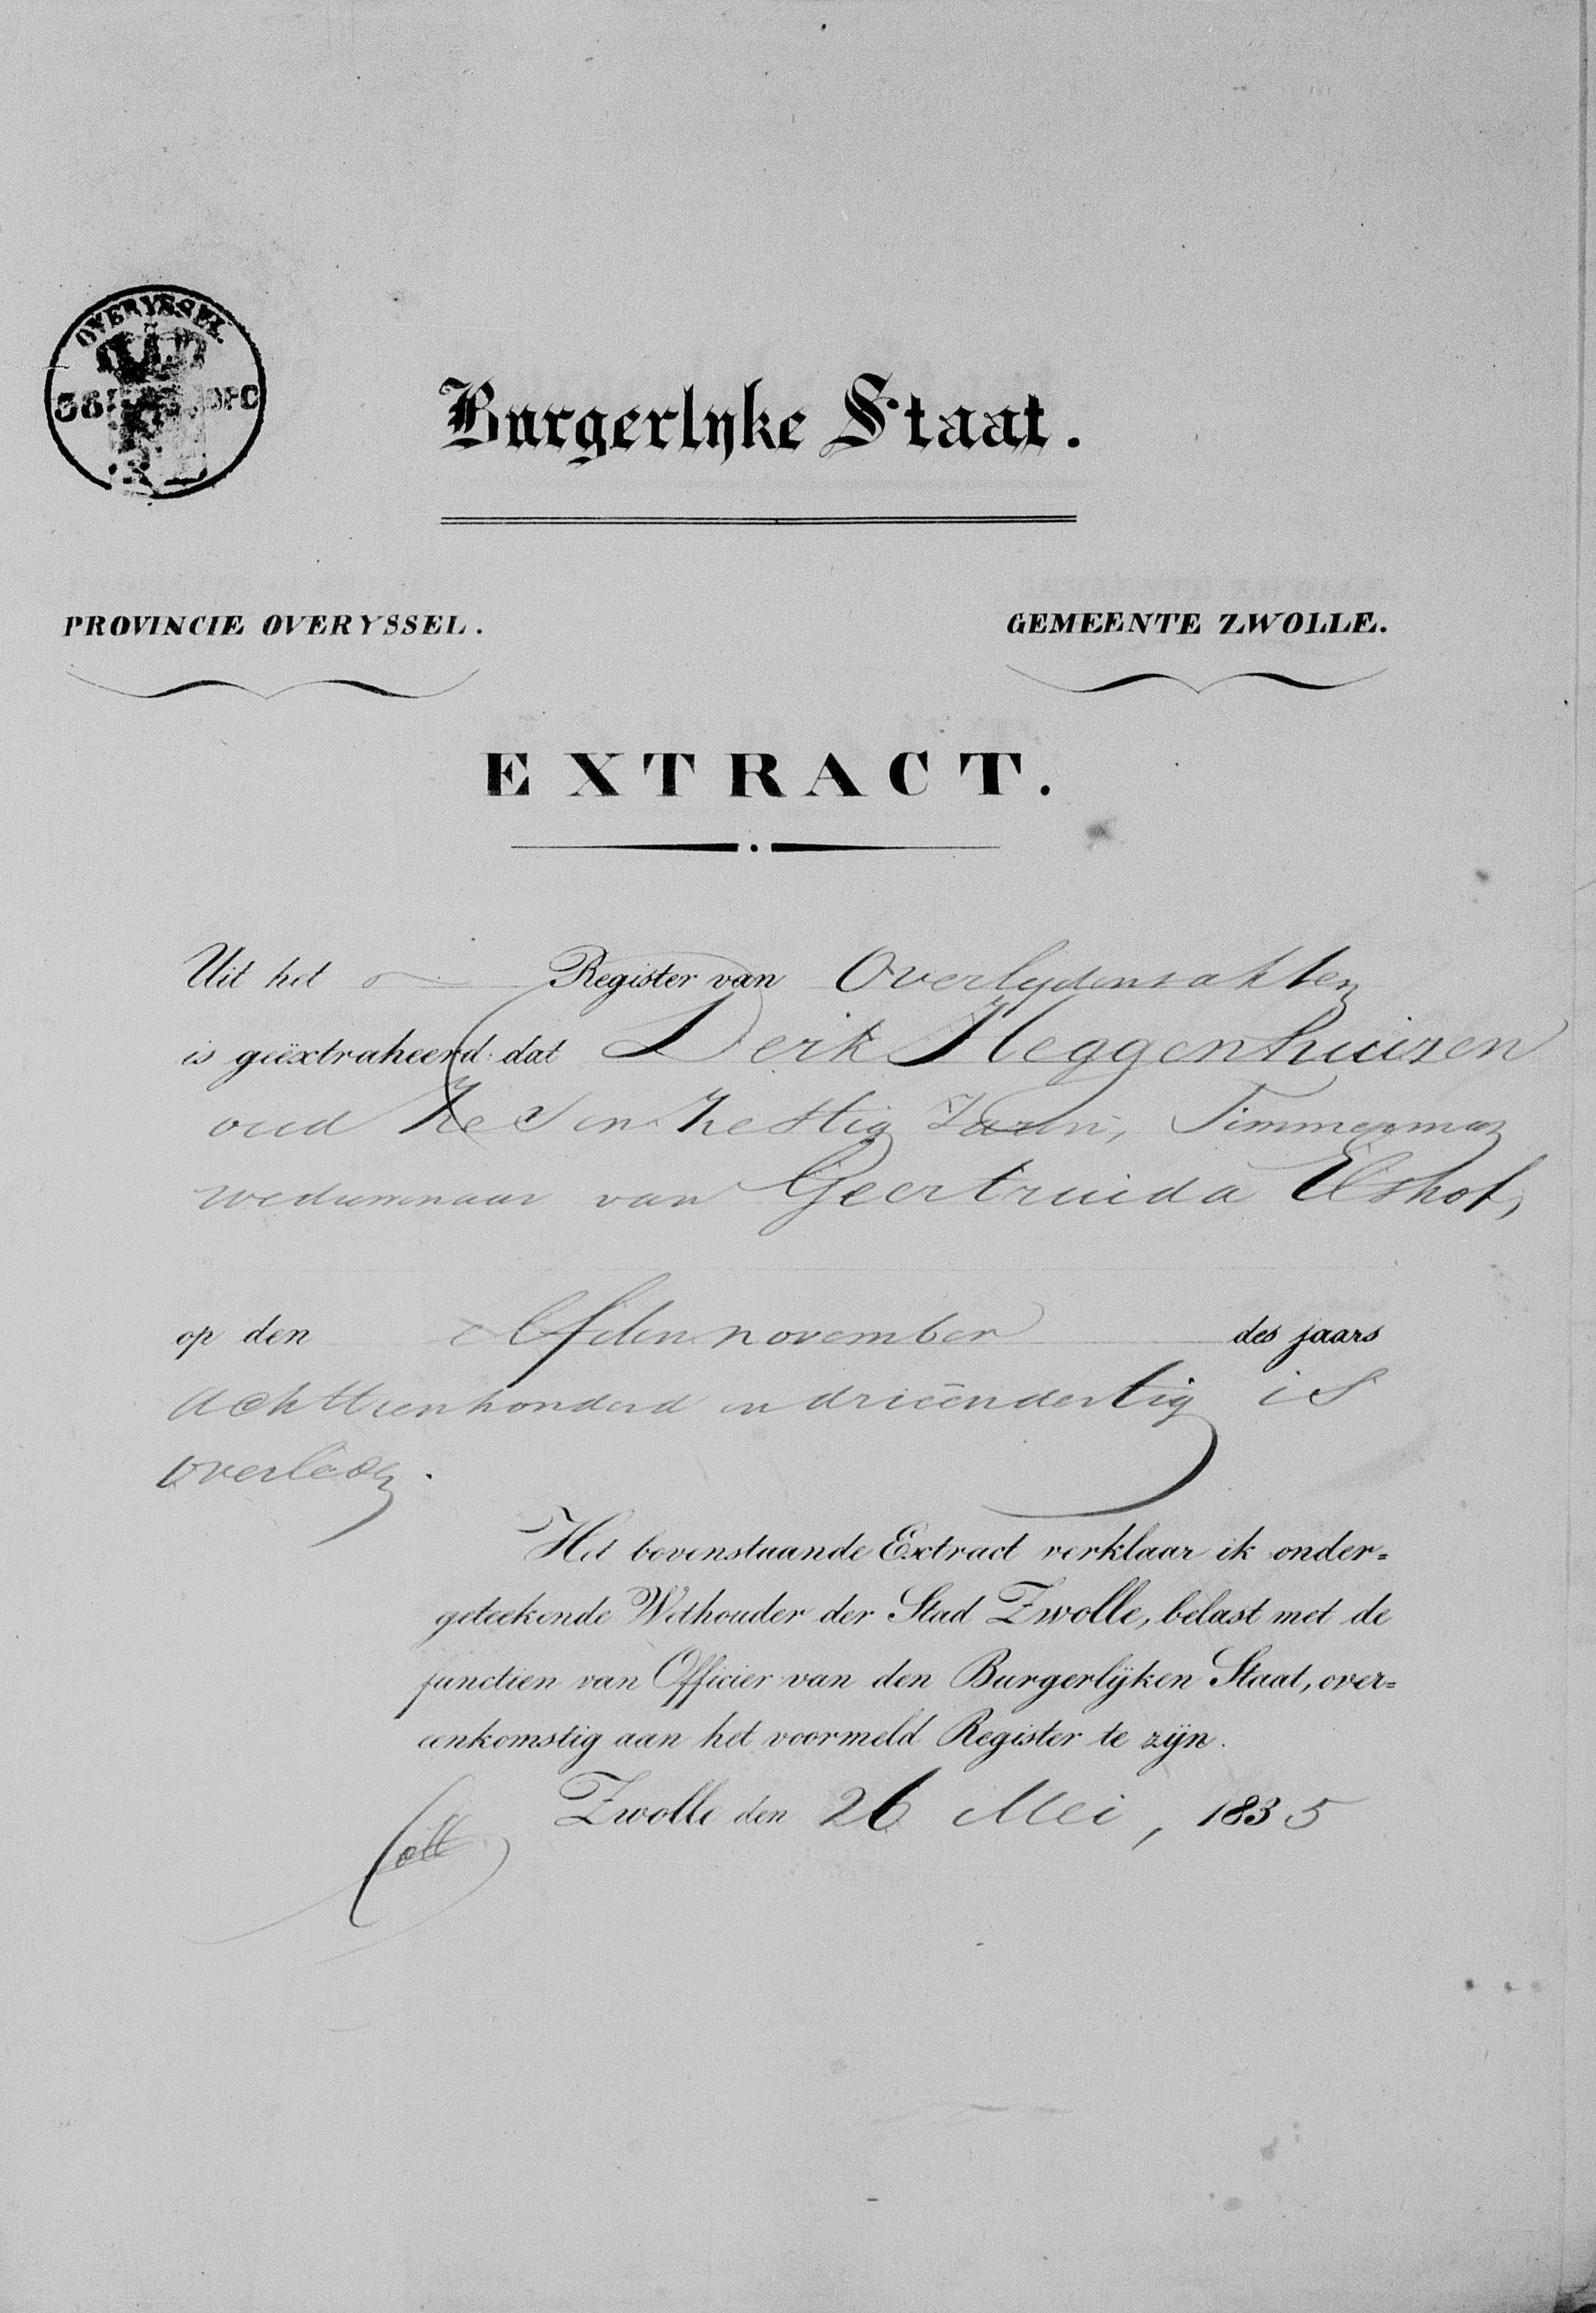 OVERYSSEL.
Burgerlyke Staat.
PROVINCIE OVERYSSEL.
GEMEENTE ZWOLLE.
EXTRACT.
Uit het Register van Overlydensakten
is geëxtraheerd dat Derk Heggenhuizen
oud Zes en Zestig Jaren, Timmerman
weduwnaar van Geertruida Elshof,
op den elfden november des jaars
Achttienhonderd en drieëndertig is
overleden.
Het bovenstaande Extract verklaar ik onder=
geteekende Wethouder der Stad Zwolle, belast met de
functien van Officier van den Burgerlijken Staat, over=
eenkomstig aan het voormeld Register te zijn.
Zwolle den 26 Mei, 1835